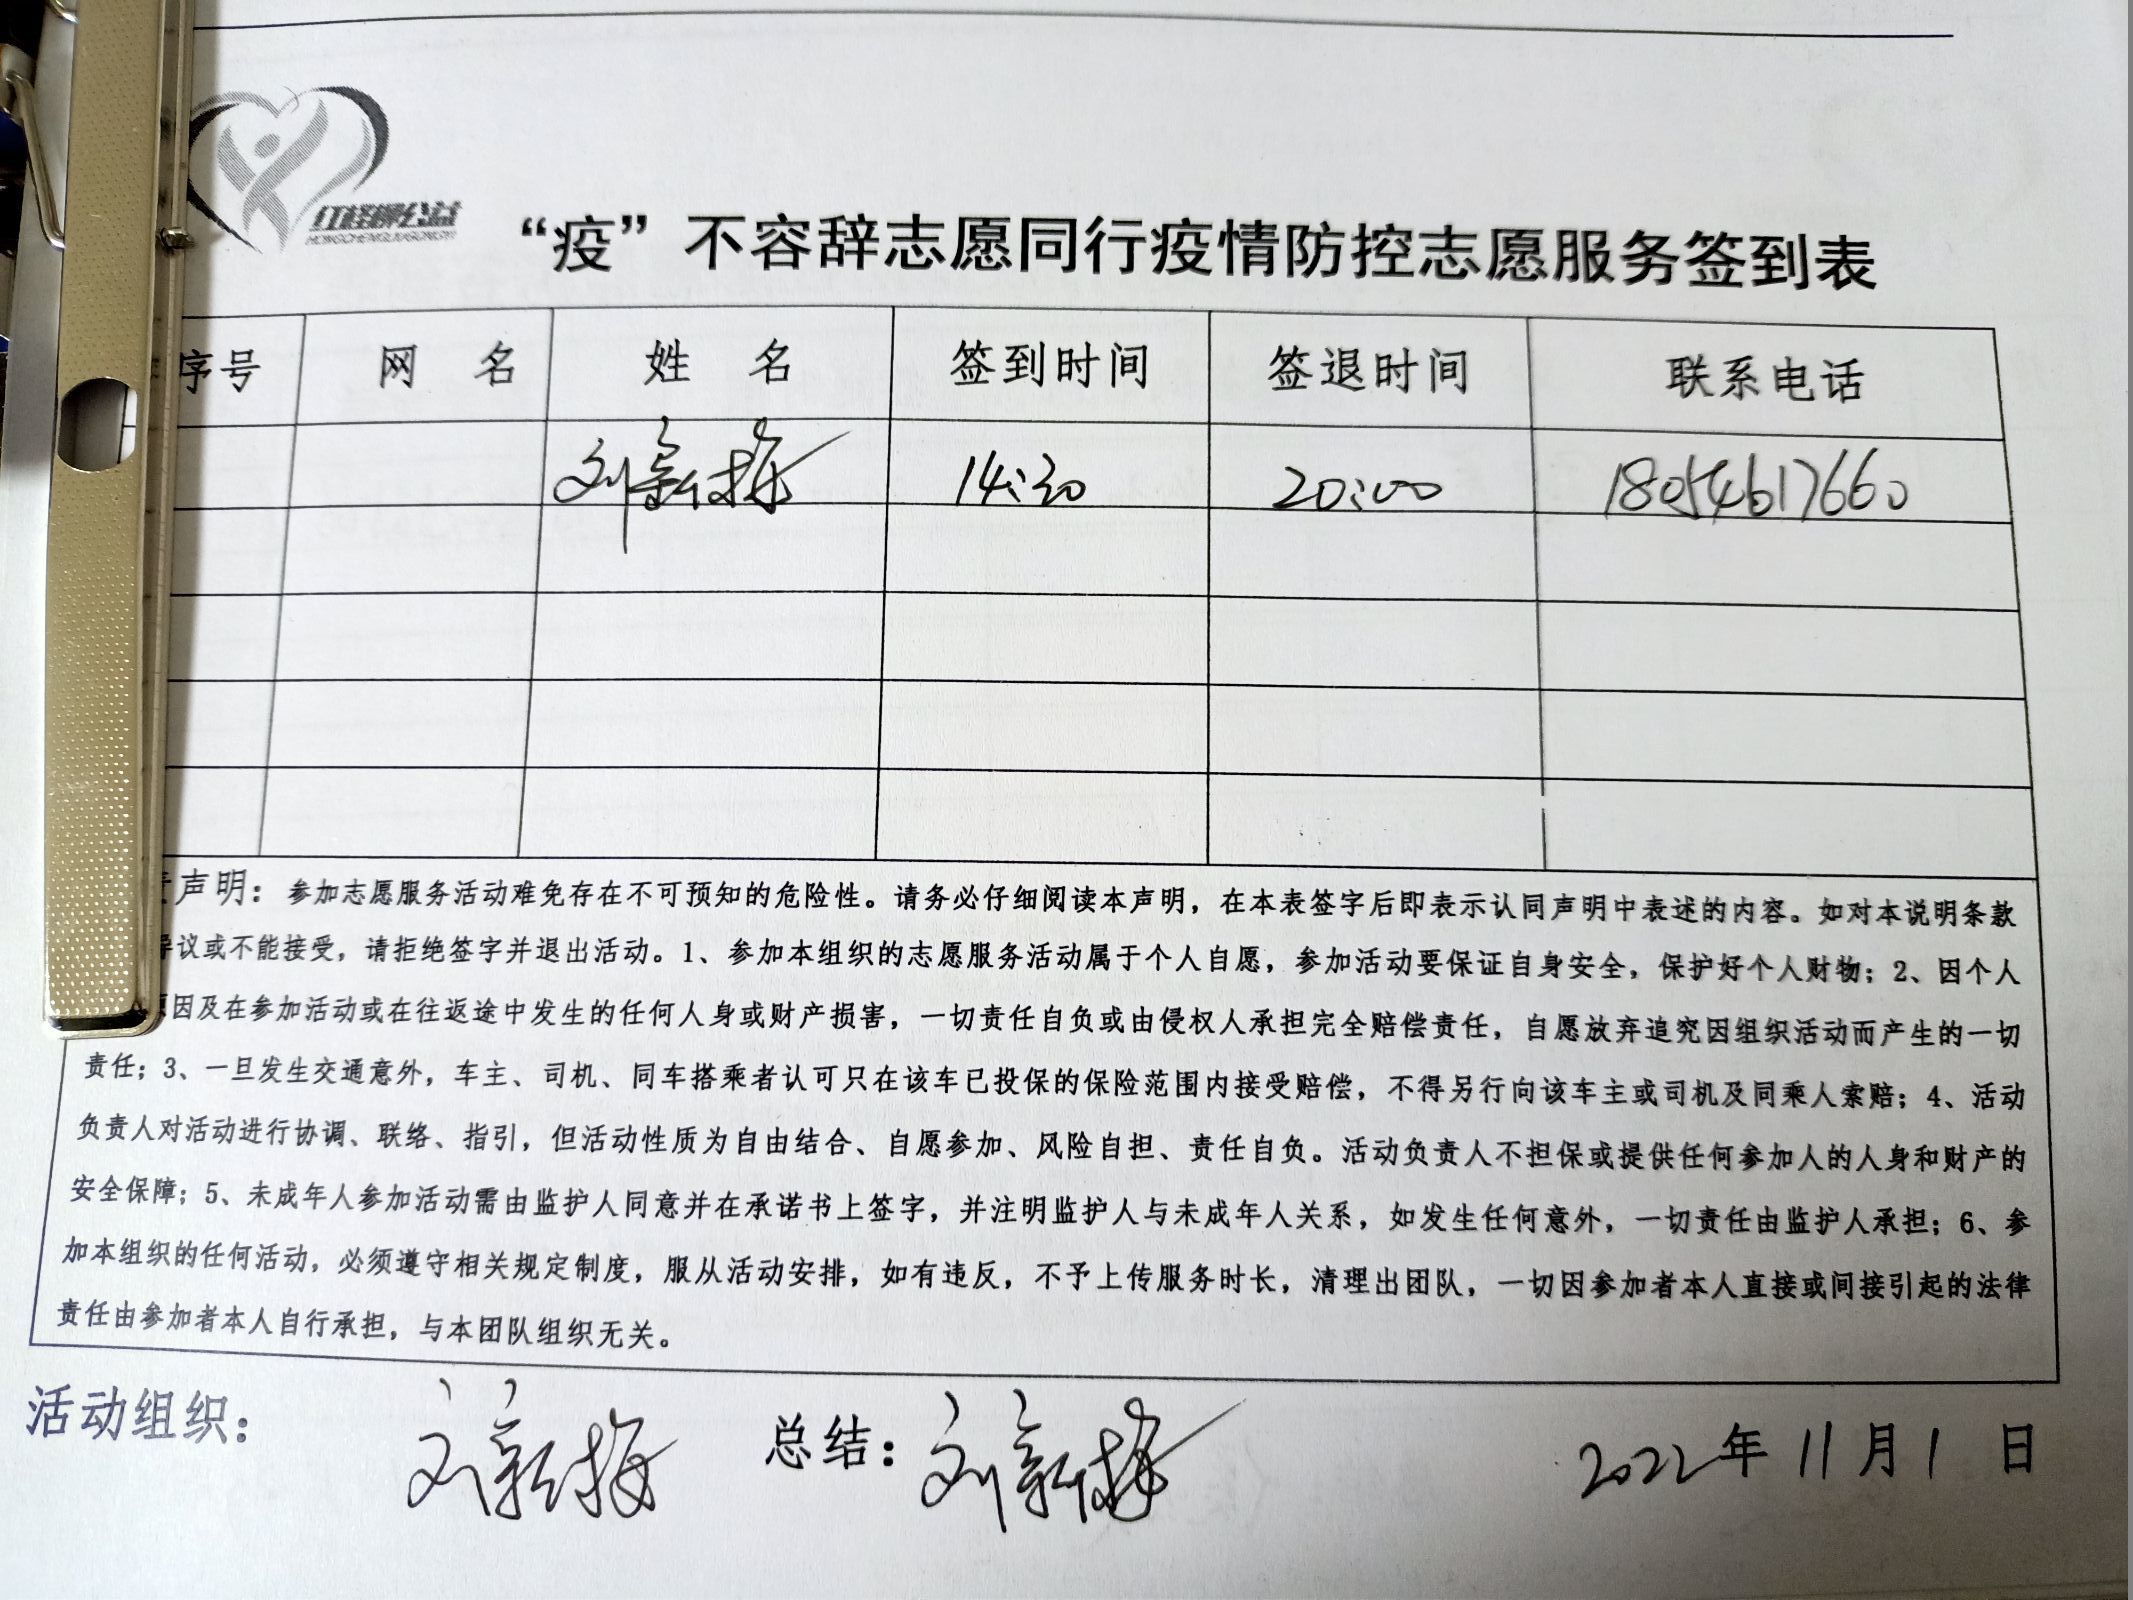 红柽柳公益
“疫”不容辞志愿同行疫情防控志愿服务签到表
序号 网 名 姓 名 签到时间 签退时间 联系电话
刘新梅 14:30 20:00 18054617660
声明：参加志愿服务活动难免存在不可预知的危险性。请务必仔细阅读本声明，在本表签字后即表示认同声明中表述的内容。如对本说明条款
议或不能接受，请拒绝签字并退出活动。1、参加本组织的志愿服务活动属于个人自愿，参加活动要保证自身安全，保护好个人财物；2、因个人
原因及在参加活动或在往返途中发生的任何人身或财产损害，一切责任自负或由侵权人承担完全赔偿责任，自愿放弃追究因组织活动而产生的一切
责任；3、一旦发生交通意外，车主、司机、同车搭乘者认可只在该车已投保的保险范围内接受赔偿，不得另行向该车主或司机及同乘人索赔；4、活动
负责人对活动进行协调、联络、指引，但活动性质为自由结合、自愿参加、风险自担、责任自负。活动负责人不担保或提供任何参加人的人身和财产的
安全保障；5、未成年人参加活动需由监护人同意并在承诺书上签字，并注明监护人与未成年人关系，如发生任何意外，一切责任由监护人承担；6、参
加本组织的任何活动，必须遵守相关规定制度，服从活动安排，如有违反，不予上传服务时长，清理出团队，一切因参加者本人直接或间接引起的法律
责任由参加者本人自行承担，与本团队组织无关。
活动组织： 刘新梅 总结：刘新梅 2022年11月1日